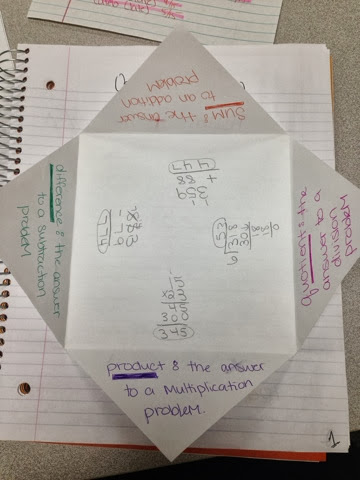 SUM: the answer
to an addition
problem
359
+ 88
447
difference: the answer
to a subtraction
problem
- 79
774
53
6 318
30
18
18
0
quotient: the
answer to a
division
problem
15
x 23
45
300
345
product: the answer
to a Multiplication
problem.
1